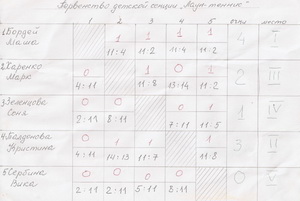 Первенство детской секции „Наун-теннис"
1 2 3 4 5 очки место
1. Бордой
Маша
1 1 1 1 4 I
11:4 11:2 11:4 11:2
2. Харенко
Марк
0 1 0 1 III
4:11 11:8 13:14 11:2
3. Зеленцова
Соня
0 0 0 1 IV
2:11 8:11 7:11 11:5
4. Болдонова
Кристина
0 1 1 1 3 II
4:11 14:13 11:7 11:8
5. Сербина
Вика
0 0 0 0 0 V
2:11 2:11 5:11 8:11